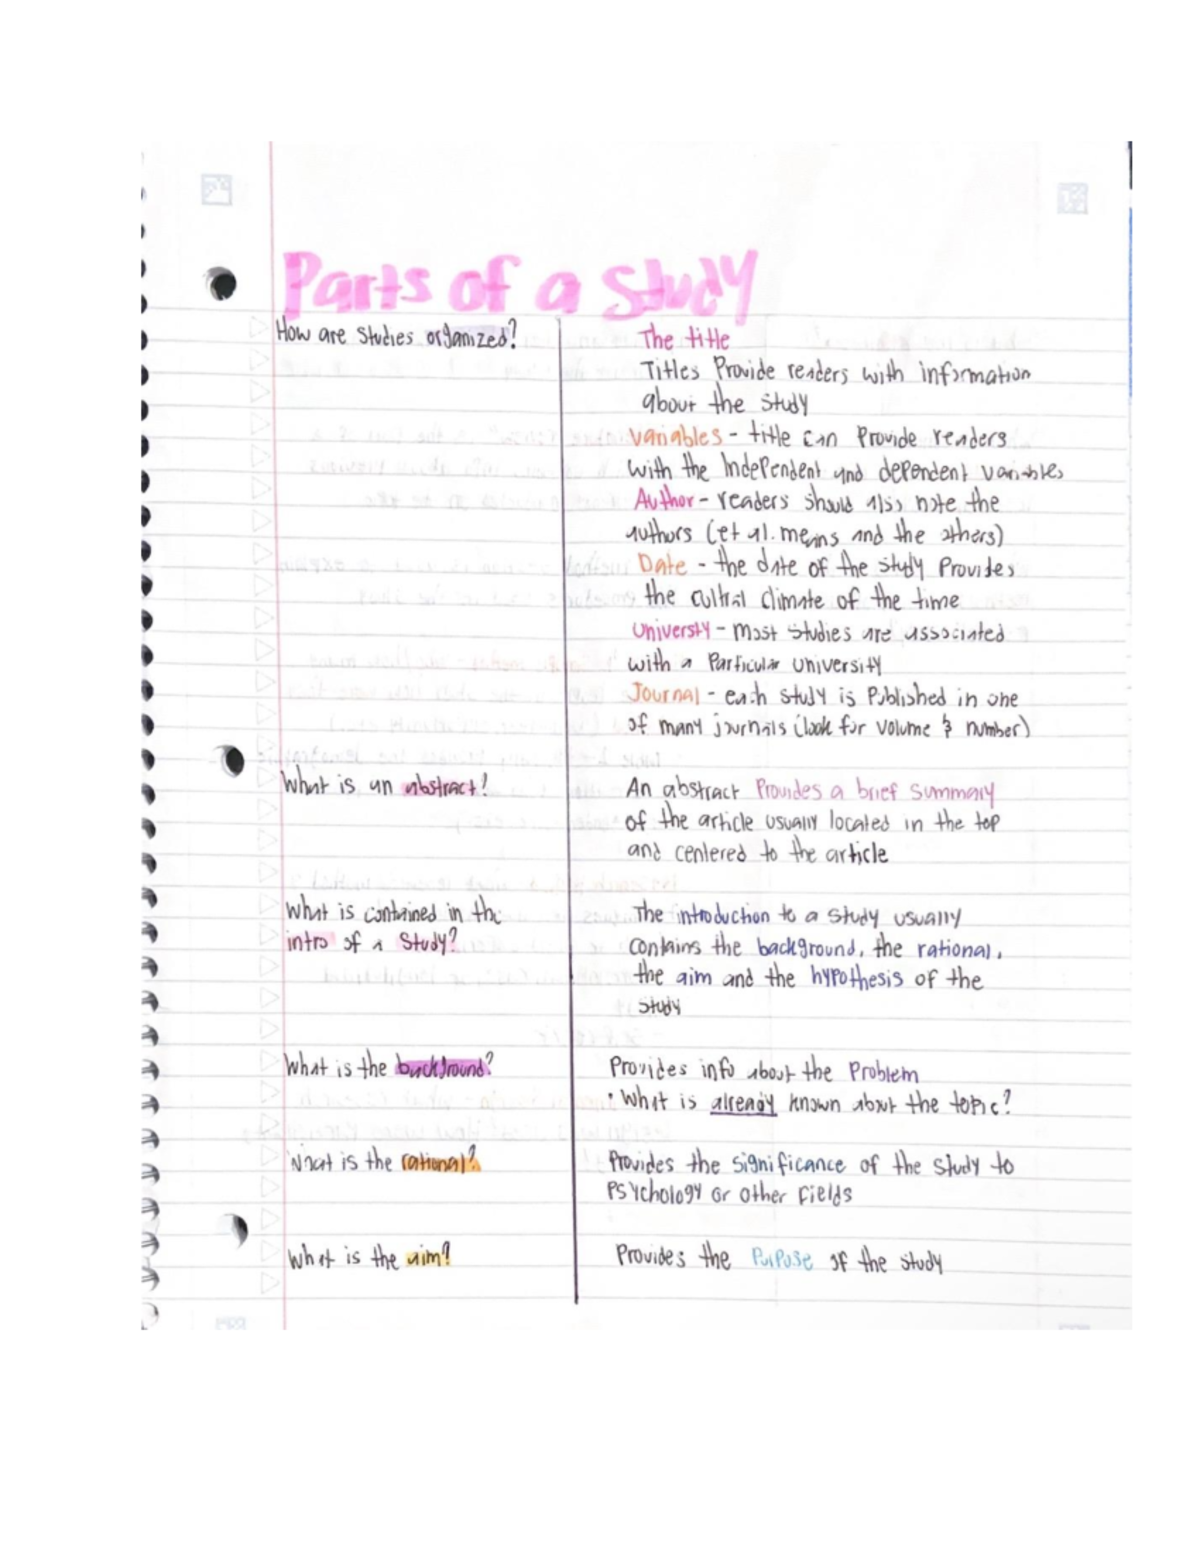 Parts of a Study
How are studies organized?
The title
Titles Provide readers with information
about the study
Variables - title can Provide readers
with the Independent and dependent variables
Author - readers should also note the
authors (et al. means and the others)
Date - the date of the study Provides
the cultral climate of the time
Universty - most studies are associated
with a Particular university
Journal - each study is Published in one
of many journals (look for volume & number)
What is an abstract?
An abstract Provides a brief summary
of the article usually located in the top
and centered to the article
What is contained in the
intro of a study?
The introduction to a study usually
contains the background, the rational,
the aim and the hypothesis of the
study
What is the background?
Provides info about the Problem
• What is already known about the topic?
What is the rational?
Provides the significance of the study to
Psychology or other fields
What is the aim?
Provides the Purpose of the study